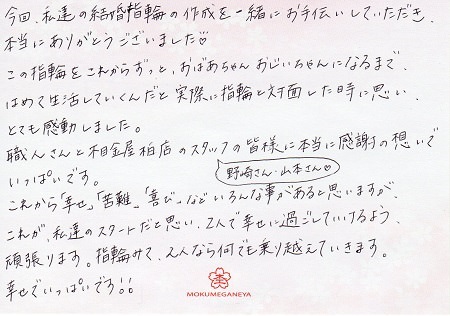 今回、私達の結婚指輪の作成を一緒にお手伝いしていただき、
本当にありがとうございました♡
この指輪をこれからずっと、おばあちゃんおじいちゃんになるまで、
はめて生活していくんだと実際に指輪と対面した時に思い、
とても感動しました。
職人さんと杢目金屋柏店のスタッフの皆様に本当に感謝の想いで
いっぱいです。
野崎さん・山本さん♡
これから「幸せ」「苦難」「喜び」などいろんな事があると思いますが、
これが、私達のスタートだと思い、2人で幸せに過ごしていけるよう、
頑張ります。指輪みて、2人なら何でも乗り越えていきます。
幸せでいっぱいです!!
MOKUMEGANEYA